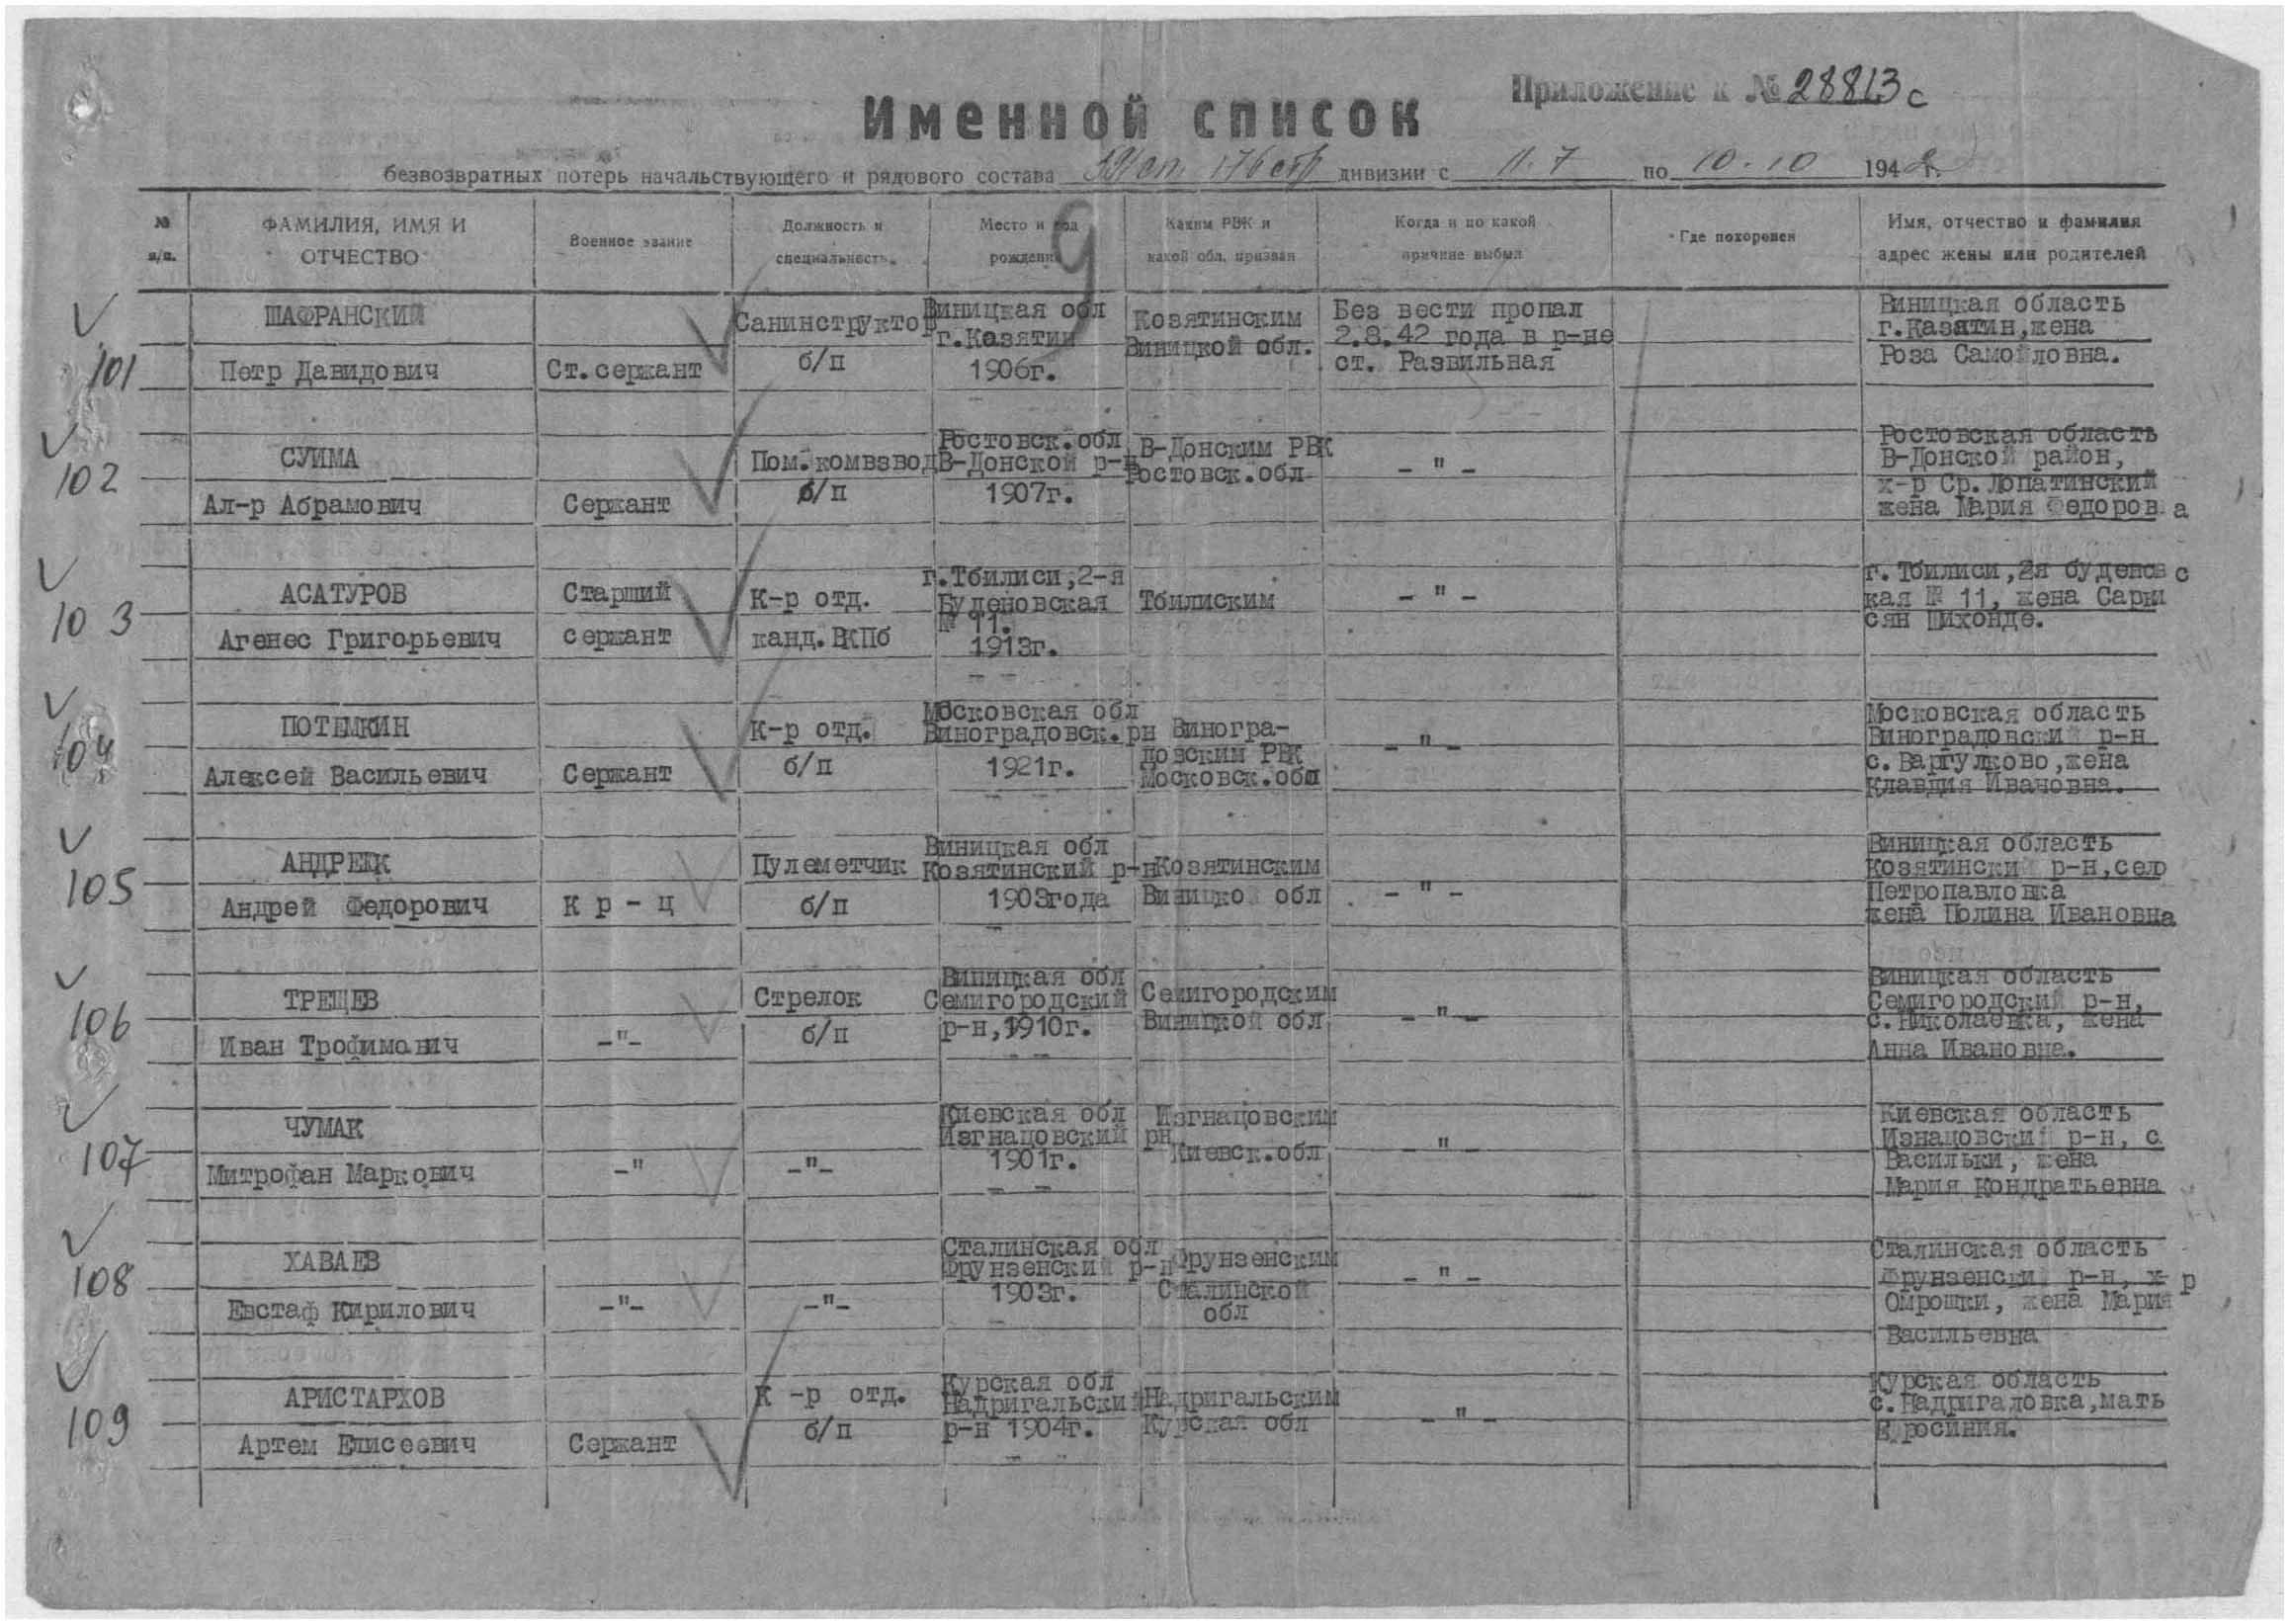 Приложение к № 28813 с
Именной список
безвозвратных потерь начальствующего и рядового состава 176 дивизии с 11.7 по 10.10 1942 г.
№ п/п.
ФАМИЛИЯ, ИМЯ И ОТЧЕСТВО
Военное звание
Должность и специальность.
Место и год рождения
Каким РВК и какой обл. призван
Когда и по какой причине выбыл
Где похоронен
Имя, отчество и фамилия адрес жены или родителей
9
101
ШАФРАНСКИЙ
Петр Давидович
Ст.сержант
Санинструктор
б/п
Виницкая обл
г.Козятин
1906г.
Козятинским
Виницкой обл.
Без вести пропал
2.8.42 года в р-не
ст. Развильная
Виницкая область
г.Казятин,жена
Роза Самойловна.
102
СУИМА
Ал-р Абрамович
Сержант
Пом.комвзвод
б/п
Ростовск.обл
В-Донской р-н
1907г.
В-Донским РВК
Ростовск.обл
-"-
Ростовская область
В-Донской район,
х-р Ср.Лопатинский
жена Мария Федоровна
103
АСАТУРОВ
Агенес Григорьевич
Старший
сержант
К-р отд.
канд.ВКПб
г.Тбилиси,2-я
Буденовская
№ 11.
1913г.
Тбилиским
-"-
г.Тбилиси,2я буденовс
кая № 11, жена Сарки
сян Шихонде.
104
ПОТЕМКИН
Алексей Васильевич
Сержант
К-р отд.
б/п
Московская обл
Виноградовск.рн
1921г.
Виногра-
довским РВК
Московск.обл
-"-
Московская область
Виноградовский р-н
с.Варгулково,жена
Клавдия Ивановна.
105
Андрей Федорович
Кр-ц
Пулеметчик
б/п
Виницкая обл
Козятинский р-н
1903года
Козятинским
Виницкой обл
-"-
Виницкая область
Козятинский р-н,село
Петропавловка
жена Полина Ивановна
106
ТРЕЩЕВ
Иван Трофимович
-"-
Стрелок
б/п
Виницкая обл
Семигородский
р-н,1910г.
Семигородским
Виницкой обл
-"-
Виницкая область
Семигородский р-н,
с.Николаевка, жена
Анна Ивановна.
107
ЧУМАК
Митрофан Маркович
-"
-"-
Киевская обл
Изгнацовский рн
1901г.
Изгнацовским
Киевск.обл
-"-
Киевская область
Изнацовский р-н, с.
Васильки, жена
Мария Кондратьевна
108
ХАВАЕВ
Евстаф Кирилович
-"-
-"-
Сталинская обл
Фрунзенский р-н
1903г.
Фрунзенским
Сталинской
обл
-"-
Сталинская область
Фрунзенский р-н, х-р
Омрошки, жена Мария
Васильевна
109
АРИСТАРХОВ
Артем Елисеевич
Сержант
К -р отд.
б/п
Курская обл
Надригальский
р-н 1904г.
Надригальским
Курская обл
-"-
Курская область
с.Надригаловка,мать